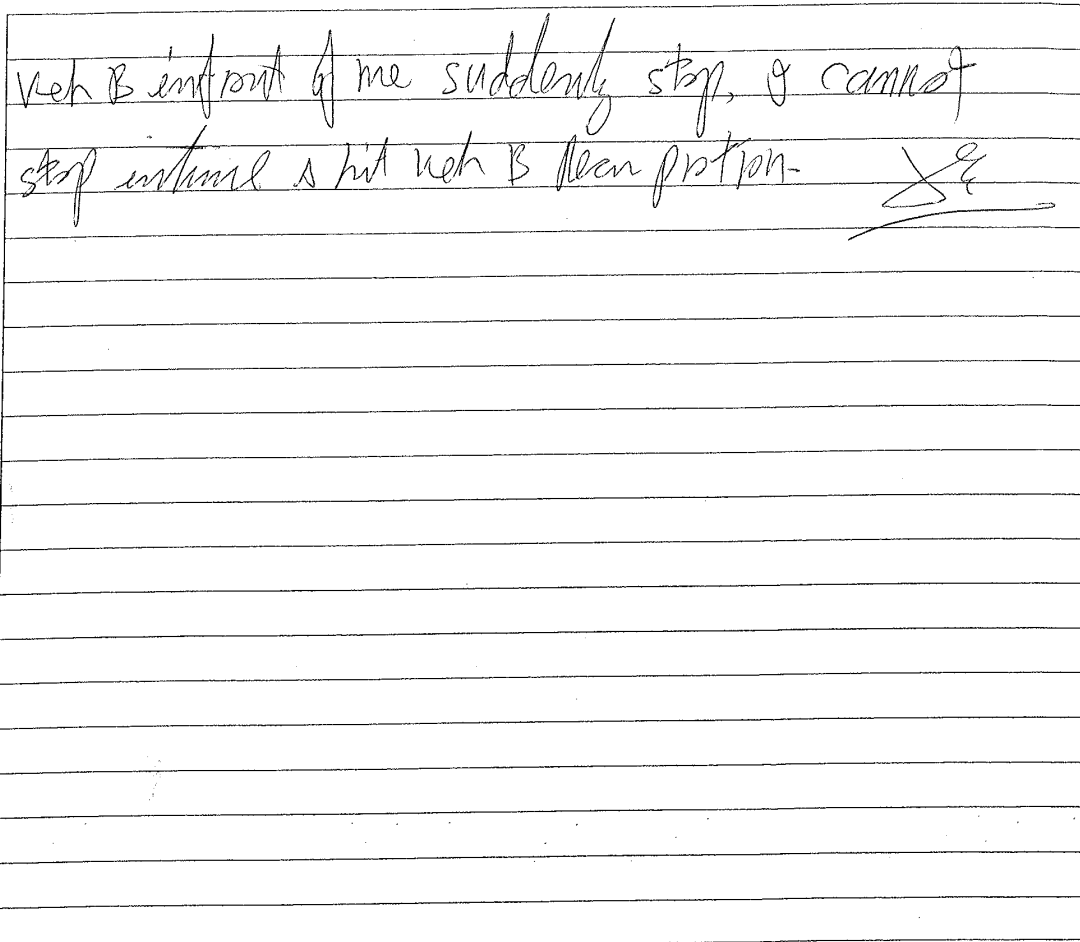 Veh B infront of me suddenly stop, I cannot
stop intime & hit veh B Rear portion.